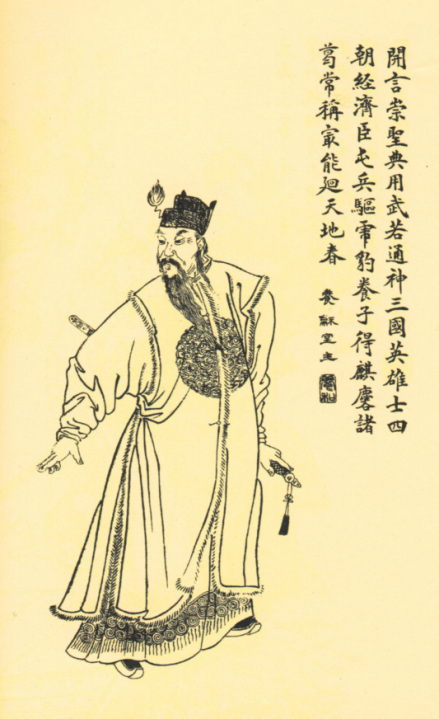 開言崇聖典用武若通神三國英雄士四
朝経濟臣屯兵驅虎豹養子得麒麐諸
葛常稱㝡能廻天地春